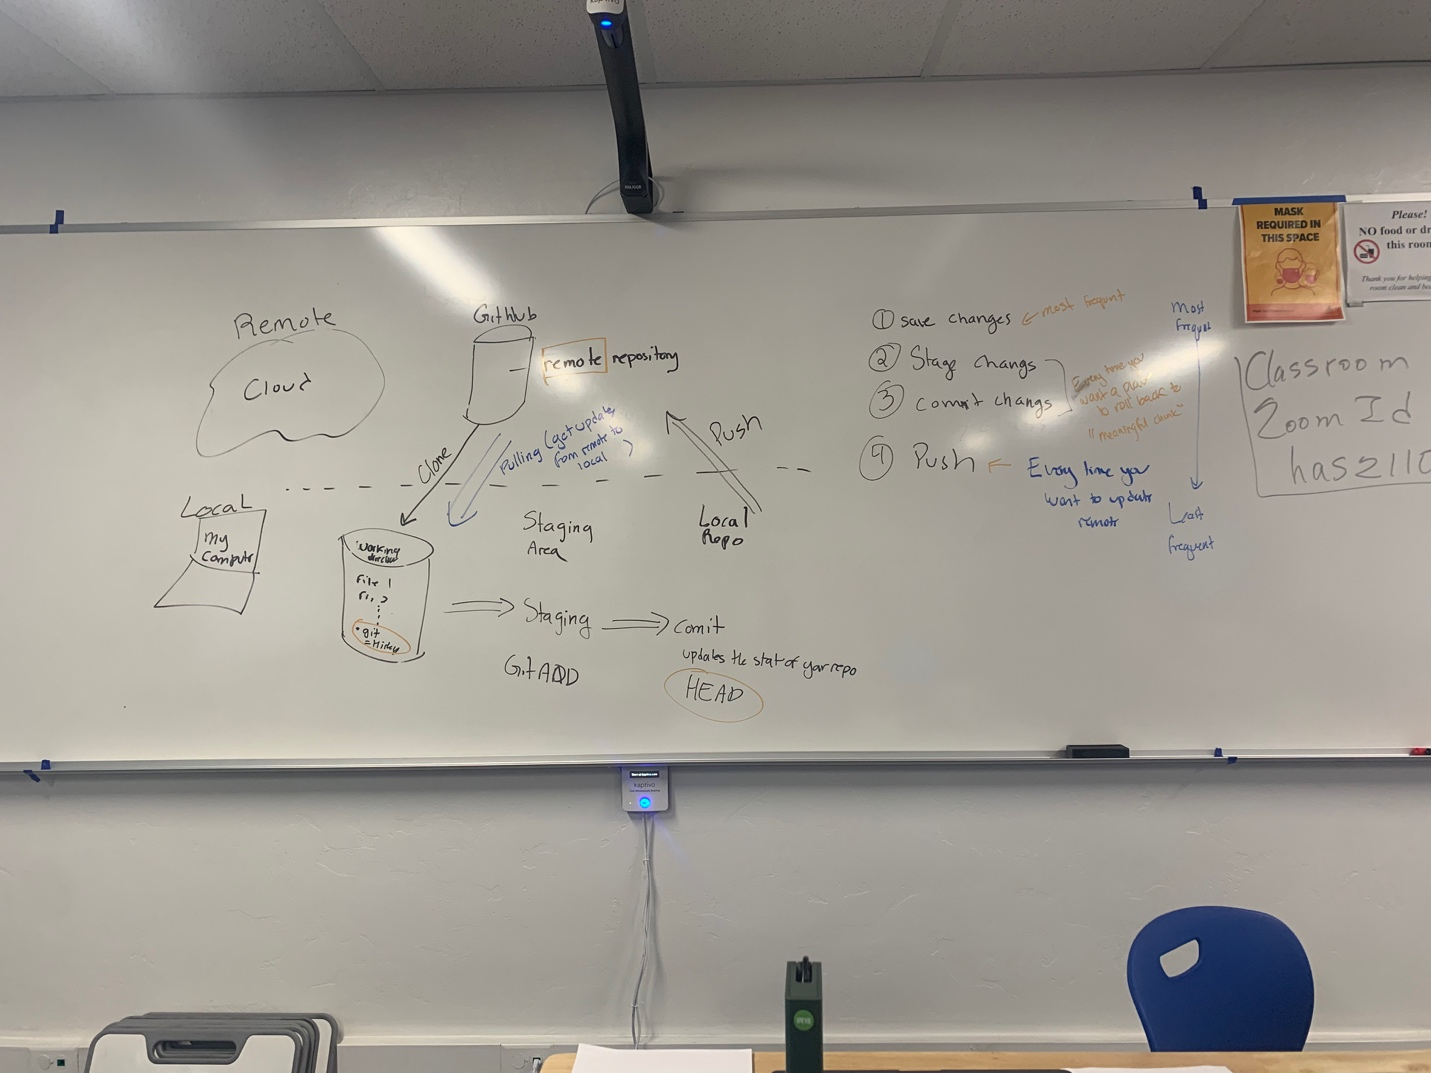 Remote
Cloud
GitHub
remote repository
Clone
Pulling (get updates
from remote to
local )
Push
Local
My
Computr
Working
File 1
• git
Staging
Area
Local
Repo
Staging
Comit
Git ADD
updates the stat of your repo
HEAD
① save changes
most frequnt
② Stage changs
③ commit changs
Every time you
want a place
to roll back to
"meaningful chunk"
④ Push
Every time you
want to update
remote
Most
frequt
Last
frequent
MASK
REQUIRED IN
THIS SPACE
Please!
NO food or dr
this room
Thank you for helping
room clean and
Classroom
Zoom Id
has2110
kaptivo
kaptivo